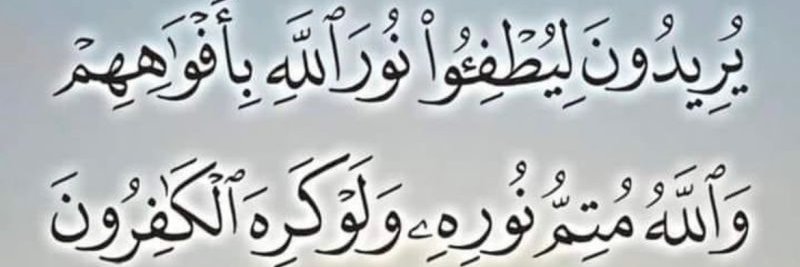 يُرِيدُونَ لِيُطْفِـُٔوا۟ نُورَ ٱللَّهِ بِأَفْوَٰهِهِمْ
وَٱللَّهُ مُتِمُّ نُورِهِۦ وَلَوْ كَرِهَ ٱلْكَٰفِرُونَ